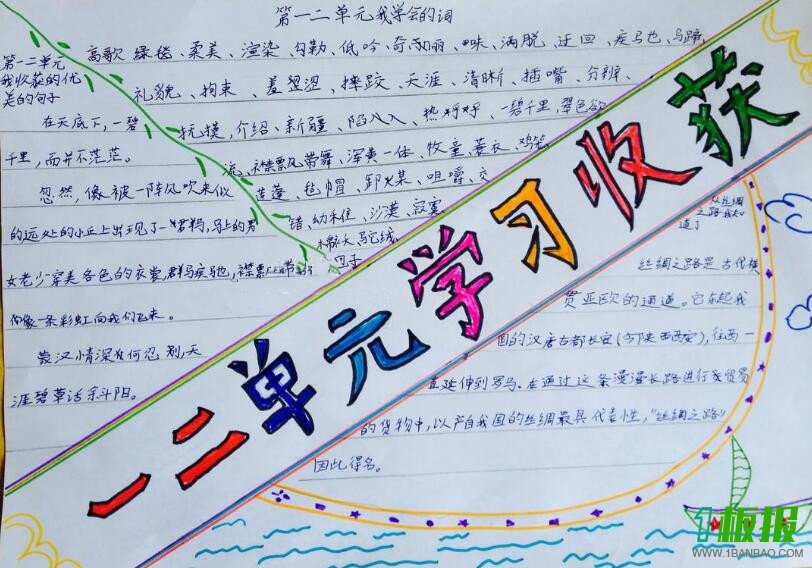 第一二单元我学会的词
高歌、绿毯、柔美、渲染、勾勒、低吟、奇丽、回味、洒脱、迂回、疾驰、马蹄、
礼貌、拘束、羞涩、摔跤、天涯、清晰、插嘴、分辨、
抚摸、介绍、新疆、陷入、热乎乎、一碧千里、翠色欲
流、襟飘带舞、浑黄一体、牧童、蓑衣、鸡笼
莲蓬、毡帽、卸煤、咀嚼、交
错、幼稚、沙漠、寂寞、
棉衣、骆驼绒、
包子
第一二单元
我收获的优
美的句子
在天底下,一碧
千里,而并不茫茫。
忽然,像被一阵风吹来似
的远处的小丘上出现了一群马,马上的男
女老少穿美各色的衣裳,群马疾驰,襟飘带舞
像一条彩虹向我们飞来。
蒙汉情深何忍别,天
涯碧草话斜阳。
一二单元学习收获
从丝绸
之路我知
道了
丝绸之路是古代横
贯亚欧的通道。它东起我
国的汉唐古都长安(今陕西西安),往西一
直延伸到罗马。在通过这条漫漫长路进行贸易
的货物中,以产自我国的丝绸最具代表性,"丝绸之路"
因此得名。
1板报
WWW.1BANBAO.COM